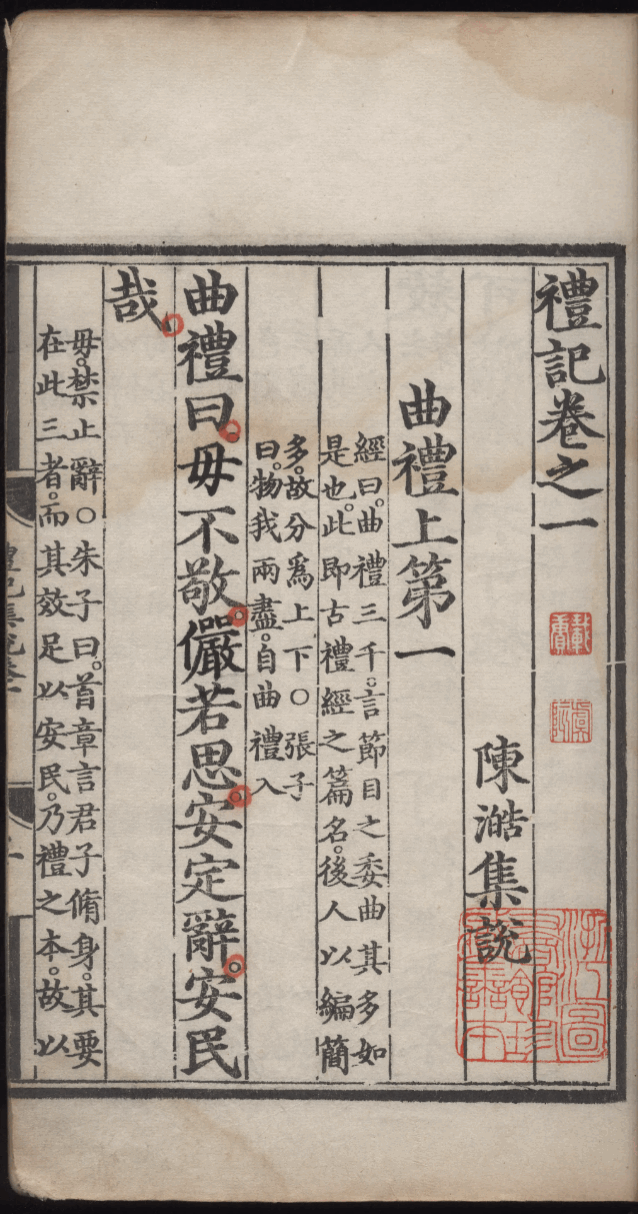 禮記卷之一
陳澔集說
曲禮上第一
經曰。曲禮三千。言節目之委曲其多如
是也。此即古禮經之篇名。後人以編簡
多。故分爲上下○張子
曰。物我兩盡。自曲禮入
曲禮曰。毋不敬。儼若思。安定辭。安民
哉。
毋。禁止辭○朱子曰。首章言君子脩身。其要
在此三者。而其效足以安民。乃禮之本。故以
禮記集說卷一
一